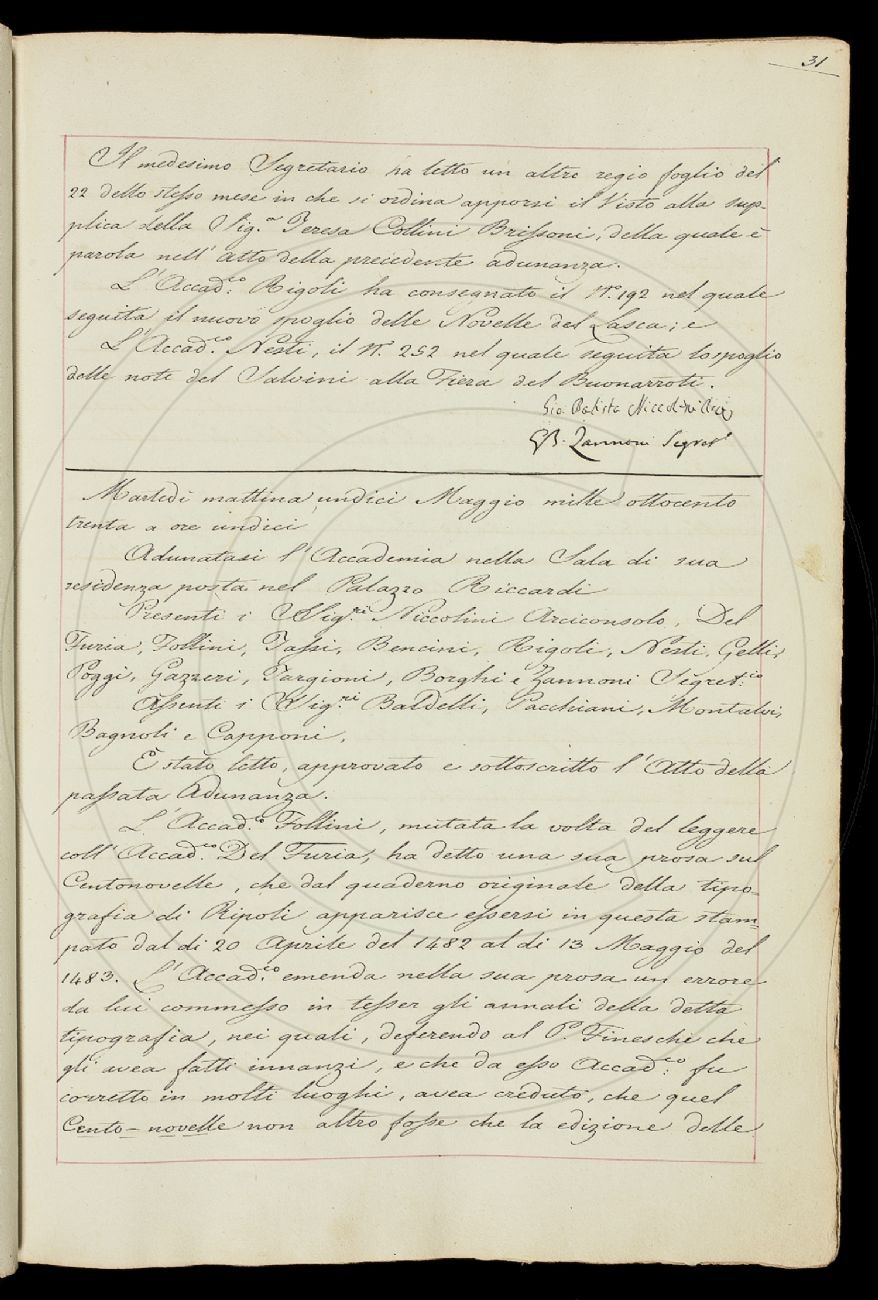 31
Il medesimo Segretario ha letto un altro regio foglio del
22 dello stesso mese in che si ordina apporsi il Visto alla sup-
plica della Sig.ª Teresa Collini Brissoni, della quale è
parola nell' Atto della precedente adunanza.
L' Accad.co Rigoli ha consegnato il N.º 192 nel quale
seguita il nuovo spoglio delle Novelle del Lasca; e
L' Accad.co Nesti, il N.º 252 nel quale seguita lo spoglio
delle note del Salvini alla Fiera del Buonarroti.
Gio. Batista Niccolini Arci
GB. Zannoni Segret.º
Martedì mattina undici Maggio mille ottocento
trenta a ore undici
Adunatasi l' Accademia nella Sala di sua
residenza posta nel Palazzo Riccardi
Presenti i SSig.ri Niccolini Arciconsolo, Del
Furia, Follini, Tassi, Bencini, Rigoli, Nesti, Gelli,
Poggi, Gazzeri, Targioni, Borghi e Zannoni Segret.io
Assenti i SSig.ri Baldelli, Pacchiani, Montalvi,
Bagnoli e Capponi.
È stato letto, approvato e sottoscritto l' Atto della
passata Adunanza.
L' Accad.co Follini, mutata la volta del leggere
coll' Accad.co Del Furia, ha detto una sua prosa sul
Centonovelle, che dal quaderno originale della tipo-
grafia di Ripoli apparisce essersi in questa stam-
pato dal dì 20 Aprile del 1482 al dì 13 Maggio del
1483. L' Accad.co emenda nella sua prosa un errore
da lui commesso in tesser gli annali della detta
tipografia, nei quali, deferendo al P.e Fineschi che
gli avea fatti innanzi, e che da esso Accad.co fu
corretto in molti luoghi, avea creduto, che quel
Cento-novelle non altro fosse che la edizione delle